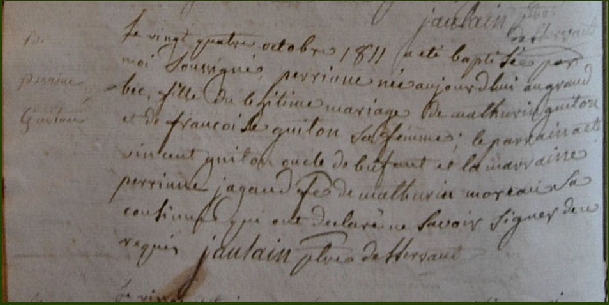 jaulain ptre
desservant
B.
perrinne
Guiton
Le vingt quatre octobre 1811 a été baptisée par
moi soussigné, perrinne née aujourdhui au grand
bec, fille du légitime mariage de mathurin guiton
et de françoise guiton sa femme; le parrain a été
vincent guiton oncle de l'enfant et la marraine
perrinne jagaud fe de mathurin moreau sa
cousinne qui ont declaré ne savoir signer de ce
requis jaulain ptre desservant